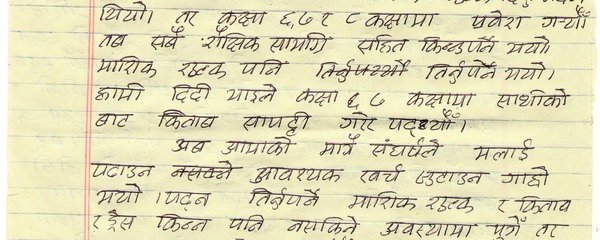 थियो। तर कक्षा ६,७ र ८ कक्षामा प्रवेश गर्‍यौँ
तब सबै शैक्षिक सामाग्रि सहित किन्नुपर्ने भयो।
मासिक शुल्क पनि तिर्नुपर्ने भयो।
हामी दिदी भाइले कक्षा ६ ७ कक्षामा साथीको
बाट किताब सापट्टी गरेर पढ्यौँ।
अब आमाको मात्रै संघर्षले मलाई
पढाउन नसक्ने आवश्यक खर्च जुटाउन गाह्रो
भयो । पढ्न तिर्नुपर्ने मासिक शुल्क र किताब
र ड्रेस किन्न पनि नसकिने अवस्थामा पुगेँ तर